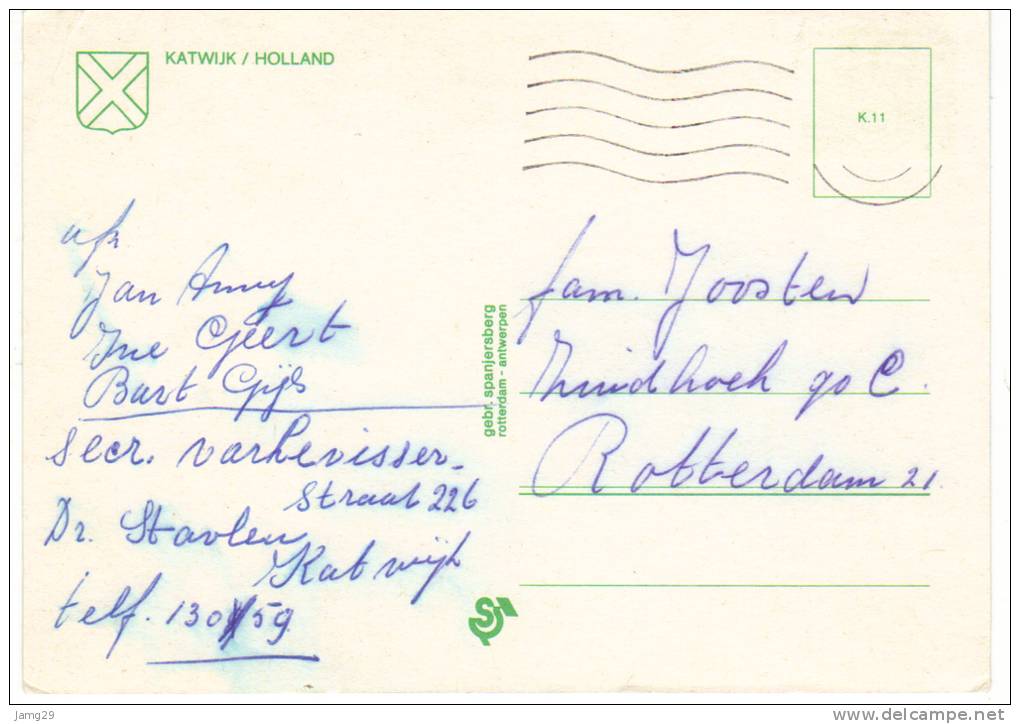 KATWIJK / HOLLAND
K.11
afz
Jan Anny
Ine Geert
Bart Gijs
secr. Varkevisser-
straat 226
Dr.
Katwijk
telf. 130 59
gebr. spanjersberg
rotterdam - antwerpen
fam. Joosten
Zuidhoek 90 C.
Rotterdam 21.
Jamg29
www.delcampe.net